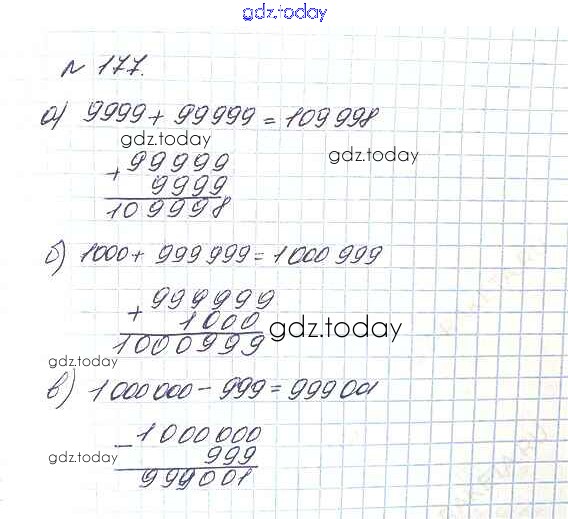 gdz.today
№ 177.
а) 9999 + 99999 = 109 998
gdz.today
gdz.today
+ 99999
9999
109998
б) 1000 + 999 999 = 1000 999
+ 999999
1000
gdz.today
1000999
gdz.today
в) 1 000 000 - 999 = 999 001
- 1000000
gdz.today
999
999001